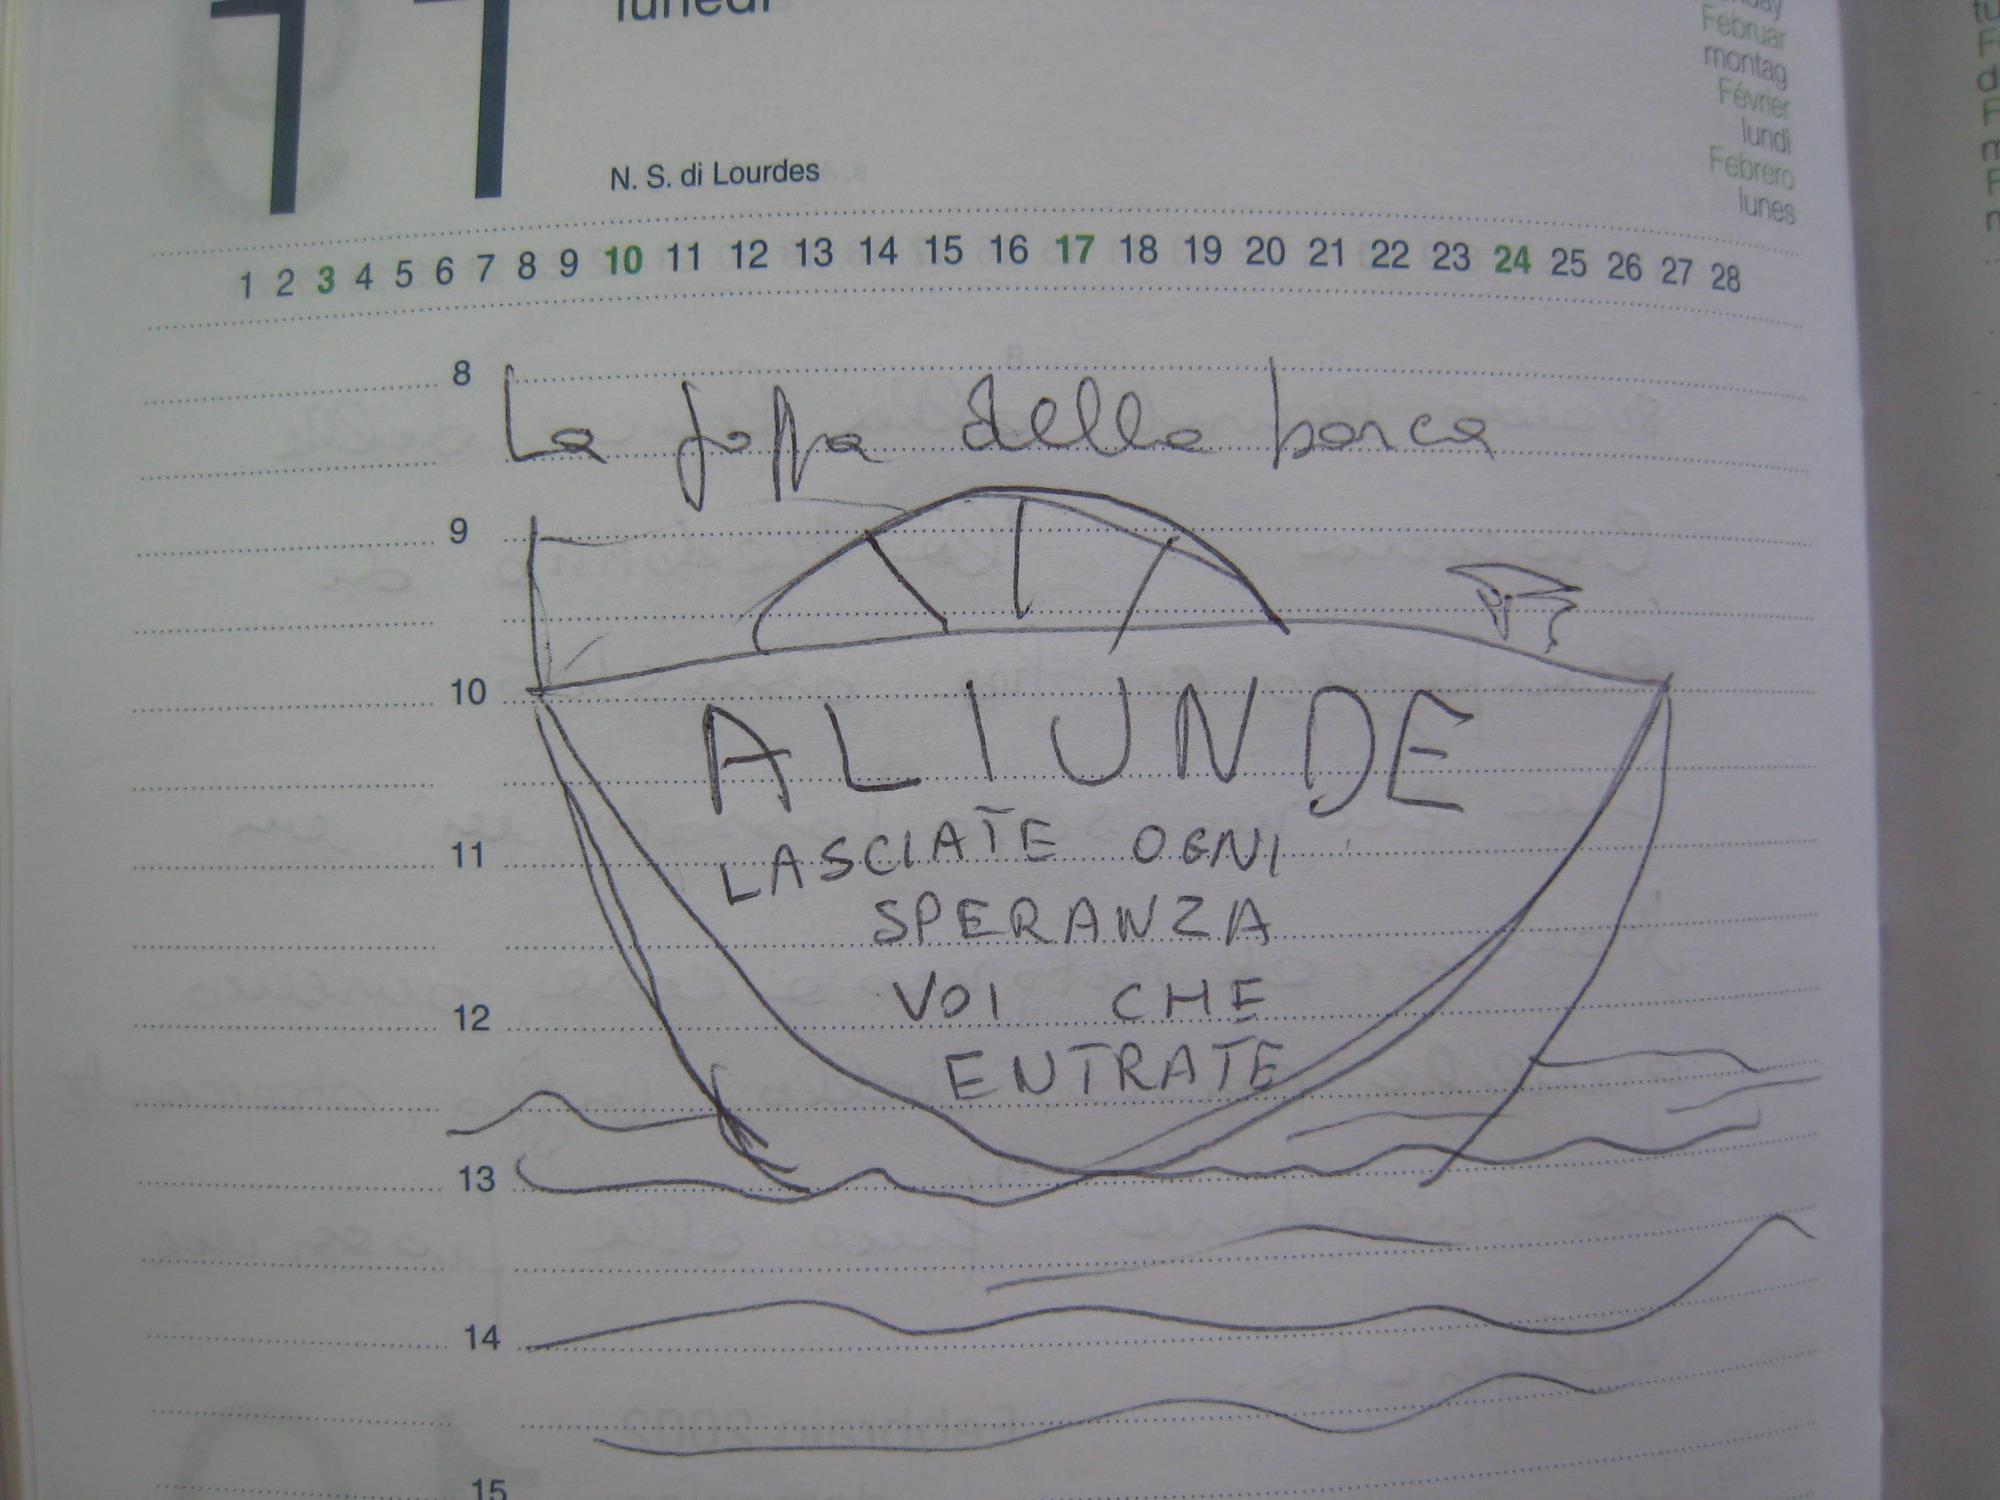 11
lunedì
Februar
montag
Février
lundi
Febrero
lunes
N. S. di Lourdes
1 2 3 4 5 6 7 8 9 10 11 12 13 14 15 16 17 18 19 20 21 22 23 24 25 26 27 28
8
La foppa della barca
9
10
ALIUNDE
11
LASCIATE OGNI
SPERANZA
12
VOI CHE
ENTRATE
13
14
15